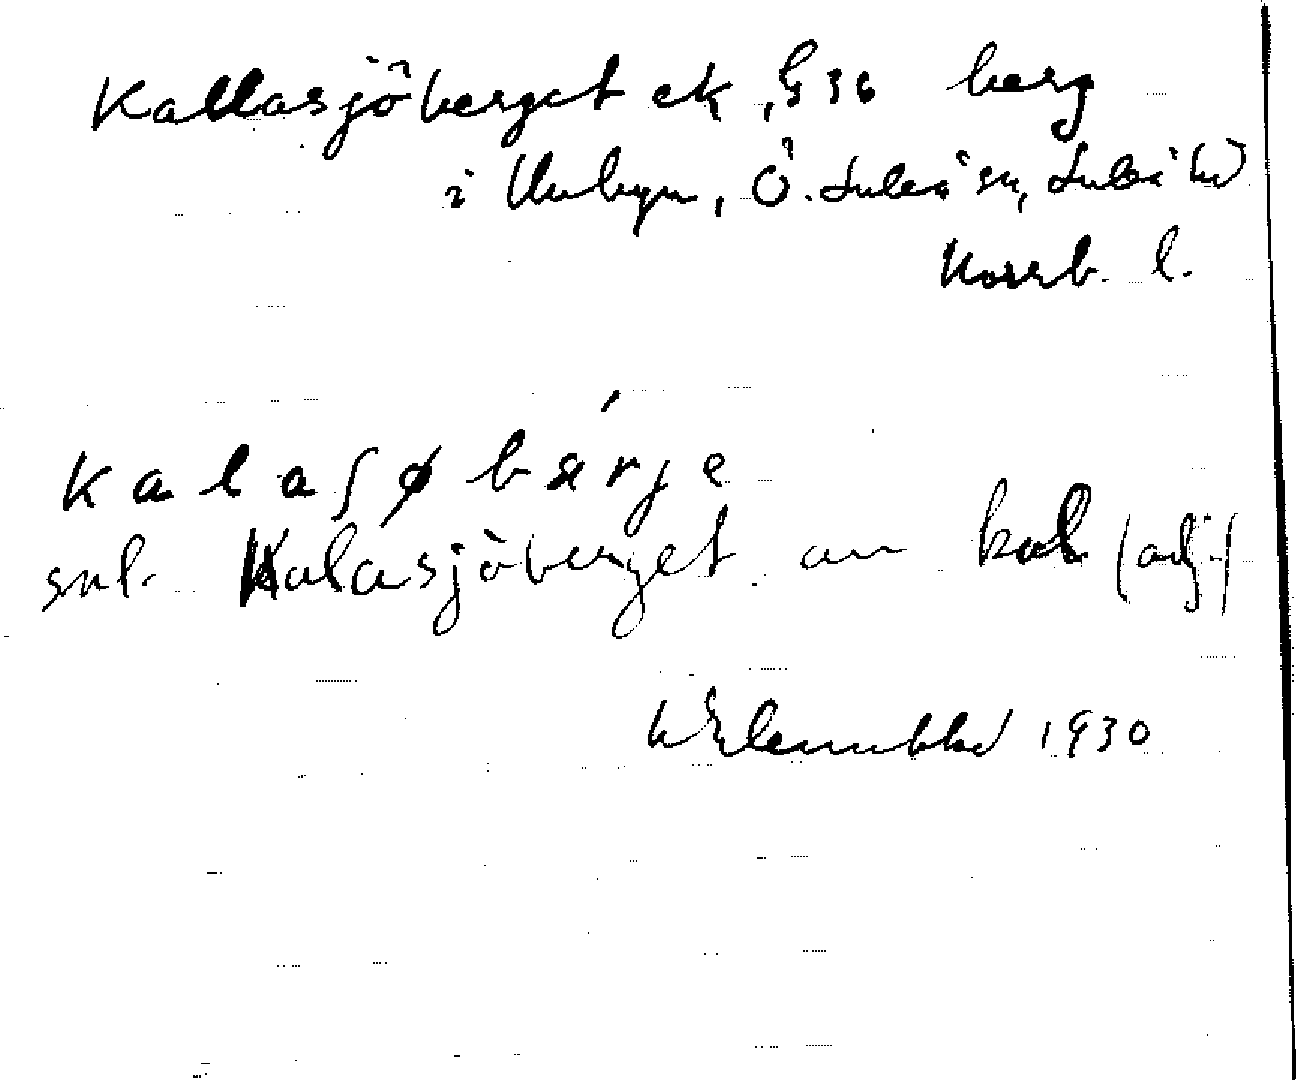 Kallasjöberget ek, G36 berg
i Unbyn, Ö. Luleå sn, Luleå hd
Norrb. l.
kalaʃøbärje
snl. Kalasjöberget av kal (adj.)
1930